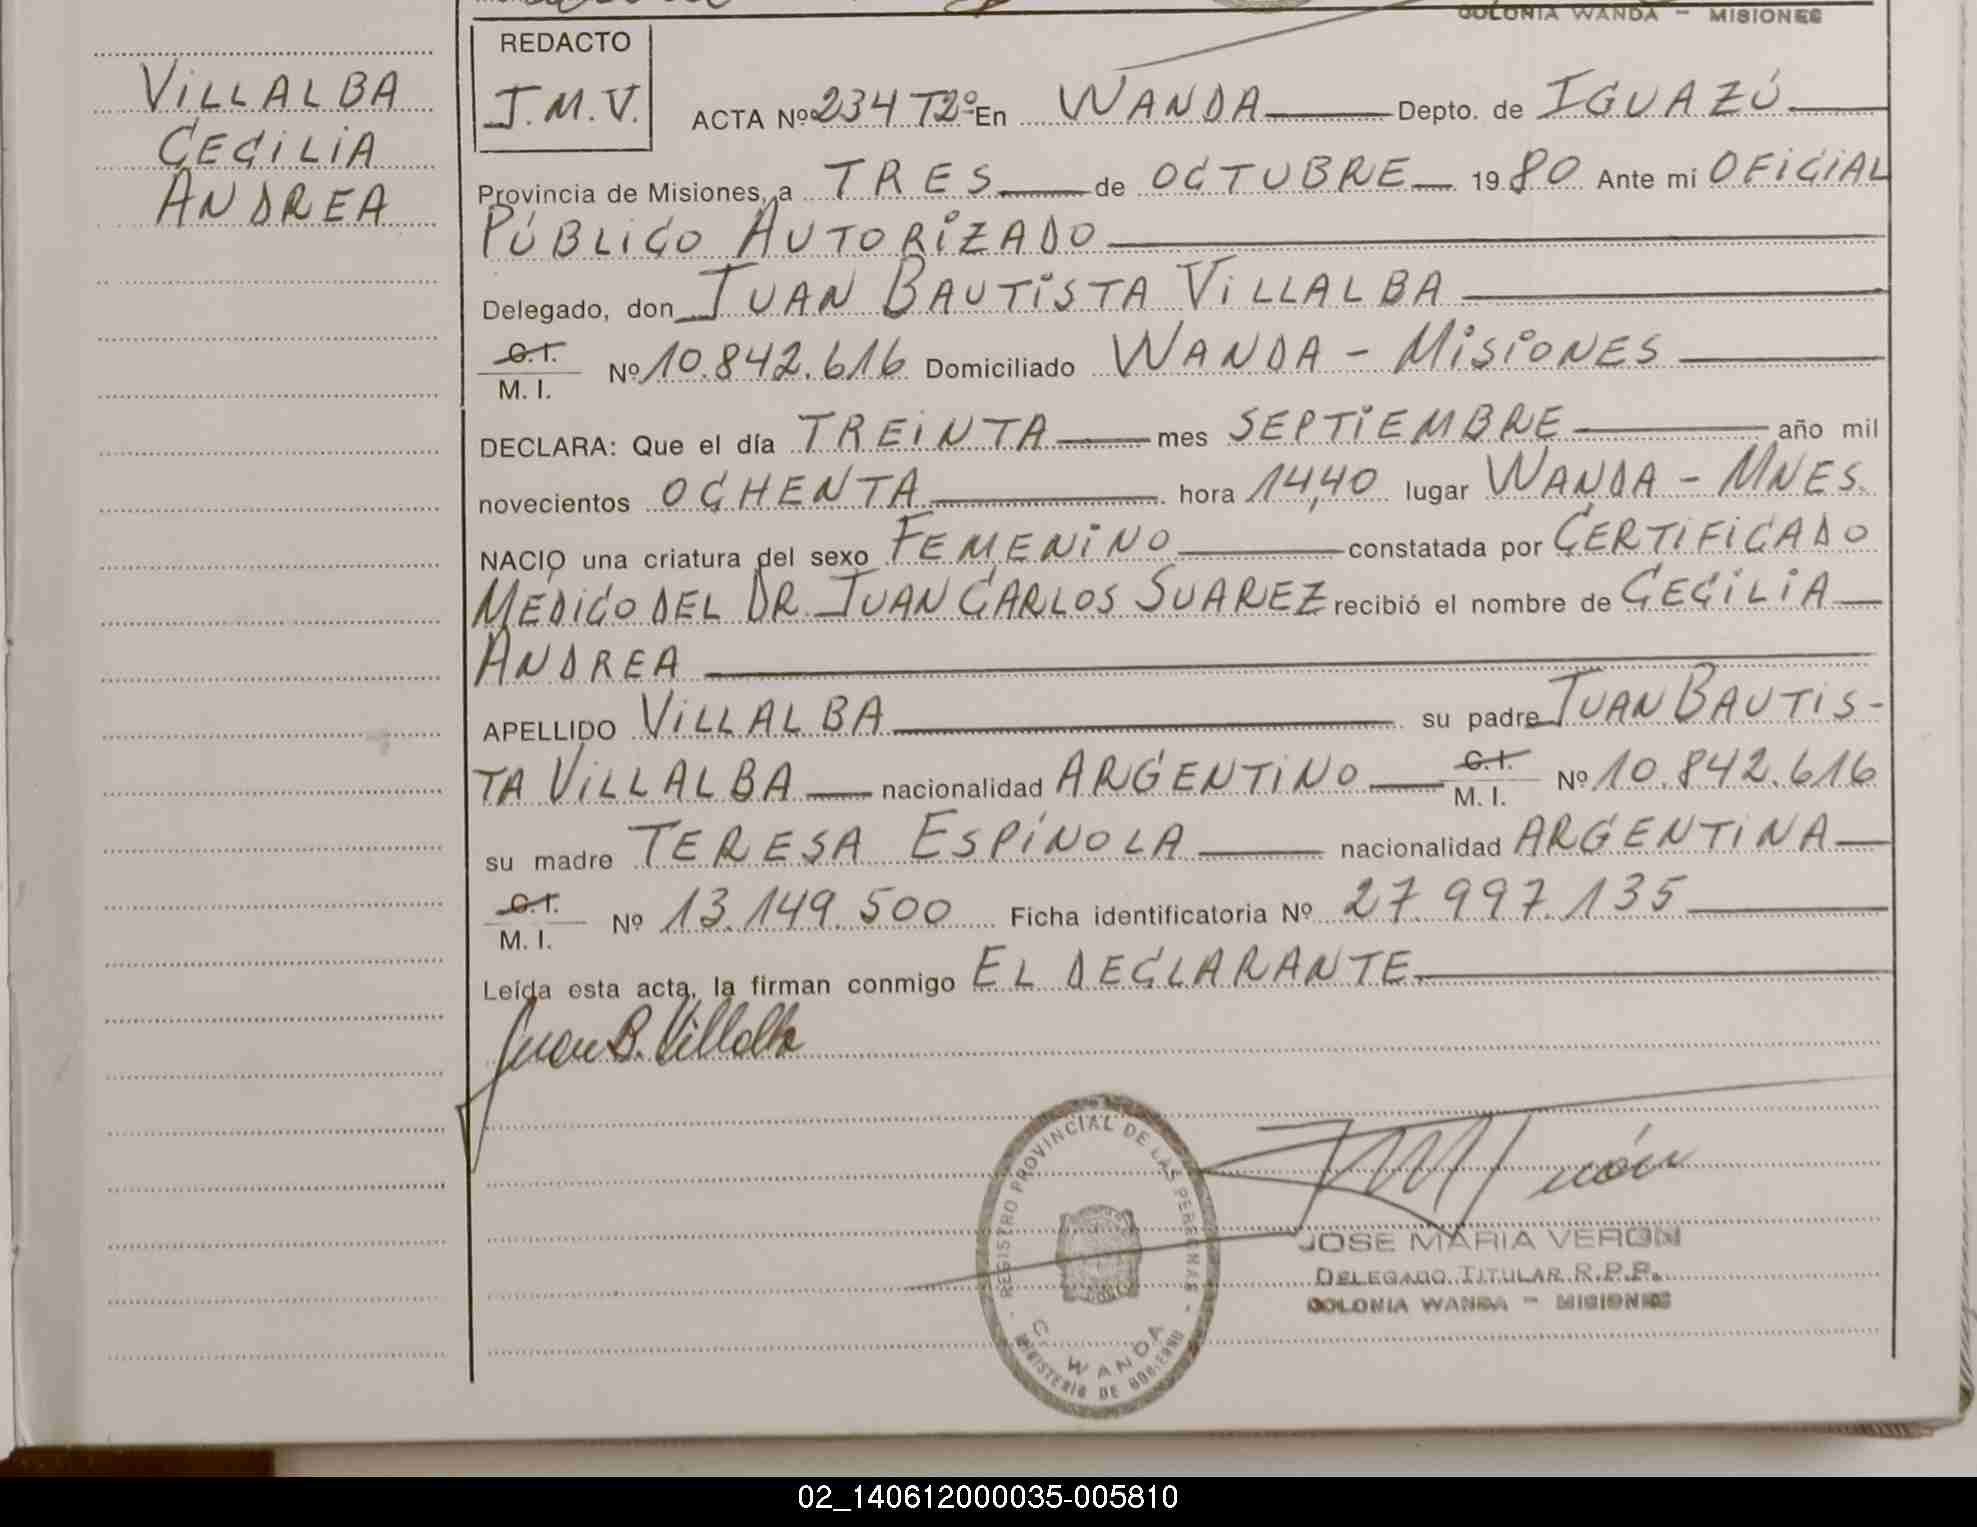 COLONIA WANDA - MISIONES
VILLALBA
CECILIA
ANDREA
REDACTO
J.M.V.
ACTA Nº 234 Tº2º En WANDA Depto. de IGUAZÚ
Provincia de Misiones, a TRES de OCTUBRE 1980 Ante mí OFICIAL
PÚBLICO AUTORIZADO
Delegado, don JUAN BAUTISTA VILLALBA
C.I.
M. I. Nº 10.842.616 Domiciliado WANDA - MISIONES
DECLARA: Que el día TREINTA mes SEPTIEMBRE año mil
novecientos OCHENTA hora 14,40 lugar WANDA - MNES.
NACIO una criatura del sexo FEMENINO constatada por CERTIFICADO
MEDICO DEL DR. JUAN CARLOS SUAREZ recibió el nombre de CECILIA
ANDREA
APELLIDO VILLALBA su padre JUAN BAUTIS-
TA VILLALBA nacionalidad ARGENTINO C.I. M. I. Nº 10.842.616
su madre TERESA ESPÍNOLA nacionalidad ARGENTINA
C.I.
M. I. Nº 13.149.500 Ficha identificatoria Nº 27.997.135
Leída esta acta, la firman conmigo EL DECLARANTE
Juan B. Villalba
REGISTRO PROVINCIAL DE LAS PERSONAS
C. WANDA
MINISTERIO DE GOBIERNO
JOSE MARIA VERON
DELEGADO TITULAR R.P.P.
COLONIA WANDA - MISIONES
02_140612000035-005810